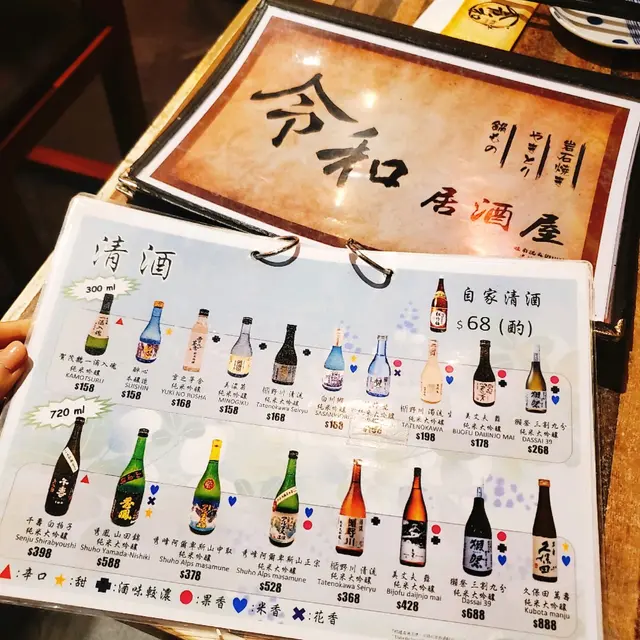 令和
居酒屋
岩石焼き
やきとり
鍋もの
清酒
自家清酒
$68 (酌)
300 ml
賀茂鶴一滴入魂
純米大吟釀
KAMOTSURU
$158
酔心
本釀造
SUISHIN
$158
雪之茅舍
純米吟釀
YUKI NO BOSHA
$168
美濃菊
純米吟釀
MINOGIKU
$158
楯野川 清流
純米大吟釀
Tatenokawa Seiryu
$168
純米吟釀
$158
楯野川 濁流 生
純米大吟釀
TATENOKAWA
$198
美丈夫 舞
純米大吟釀
BIJOFU DAIJINJO MAI
$178
獺祭 三割九分
純米大吟釀
DASSAI 39
$268
720 ml
千壽 白拍子
純米大吟釀
Senju Shirabyoushi
$398
秀鳳 山田錦
純米大吟釀
Shuho Yamada-Nishiki
$588
秀峰阿爾卑斯山中取
純米吟釀
Shuho Alps masamune
$378
秀峰阿爾卑斯山正宗
純米大吟釀
Shuho Alps masamune
$528
楯野川 清流
純米大吟釀
Tatenokawa Seiryu
$368
美丈夫 舞
純米大吟釀
Bijofu daijnjo mai
$428
獺祭 三割九分
純米大吟釀
Dassai 39
$688
久保田 萬壽
純米大吟釀
Kubota manju
$888
▲:辛口 ★:甜 ✚:酒味較濃 ●:果香 ♥:米香 ✖:花香